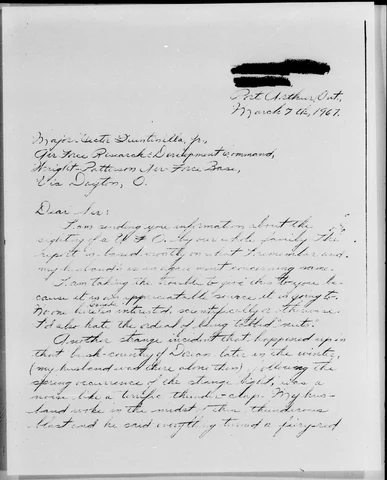 Port Arthur, Ont.,
March 7th, 1967.
Major Hector Quintinilla, Jr.,
Air Force Research & Development Command,
Wright-Patterson Air Force Base,
Via Dayton, O.
Dear Sir:
I am sending you information about the
sighting of a U F O by our whole family. The
report is based mostly on what I remember and
my husband is in agreement concerning same.
I am taking the trouble to give this to you be-
cause it is a reputable source it is going to.
No one here is interested, scientifically or otherwise.
I'd also hate the ordeal of being called "nuts".
Another strange incident that happened up in
that bush-country of later in the winter,
(my husband was there alone then) following the
spring occurrence of the strange light, was a
noise like a terrific thunder-clap. My hus-
band woke in the midst of this thunderous
blast and he said everything turned a fairy red